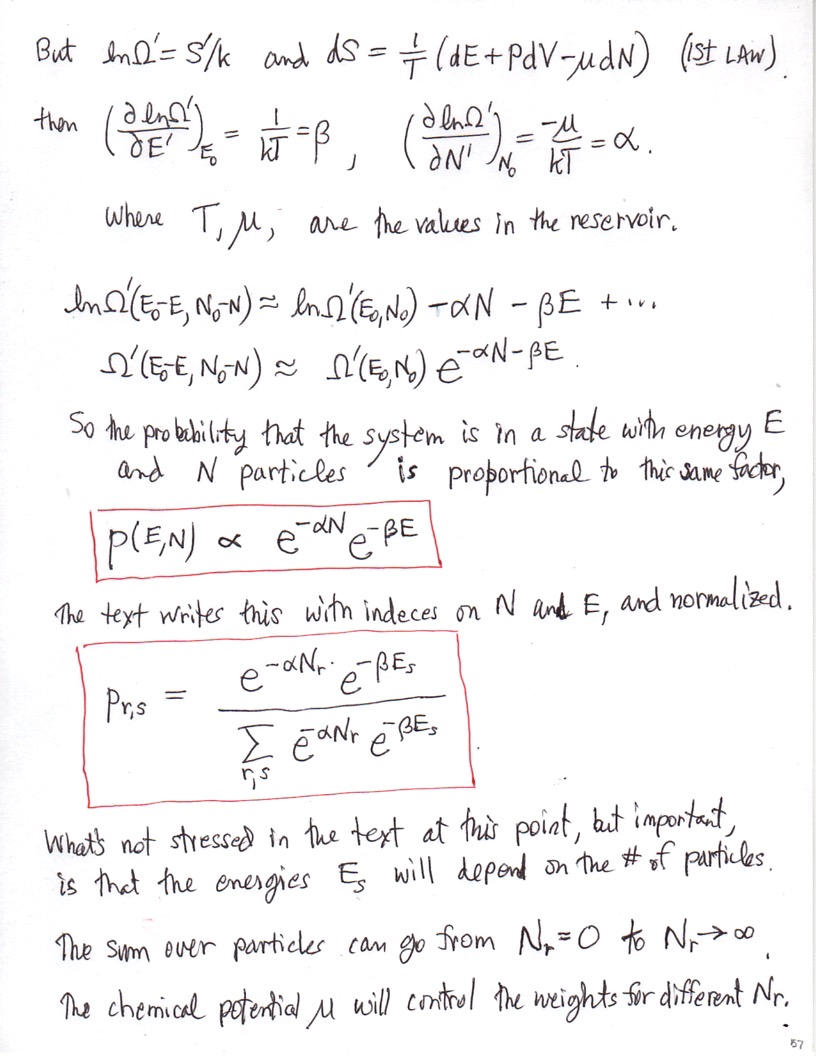 But lnΩ' = S'/k and dS = 1/T (dE + PdV - μdN) (1St LAW).
then (∂lnΩ'/∂E')_E₀ = 1/kT = β, (∂lnΩ'/∂N')_N₀ = -μ/kT = α.
where T, μ, are the values in the reservoir.
lnΩ'(E₀-E, N₀-N) ≈ lnΩ'(E₀,N₀) - αN - βE + ...
Ω'(E₀-E, N₀-N) ≈ Ω'(E₀,N₀) e^{-αN-βE}.
So the probability that the system is in a state with energy E
and N particles is proportional to this same factor,
p(E,N) ∝ e^{-αN} e^{-βE}
The text writes this with indeces on N and E, and normalized.
p_{r,s} = e^{-αN_r} e^{-βE_s} / ∑_{r,s} e^{-αN_r} e^{-βE_s}
What's not stressed in the text at this point, but important,
is that the energies E_s will depend on the # of particles.
The sum over particles can go from N_r = 0 to N_r → ∞.
The chemical potential μ will control the weights for different N_r.
57